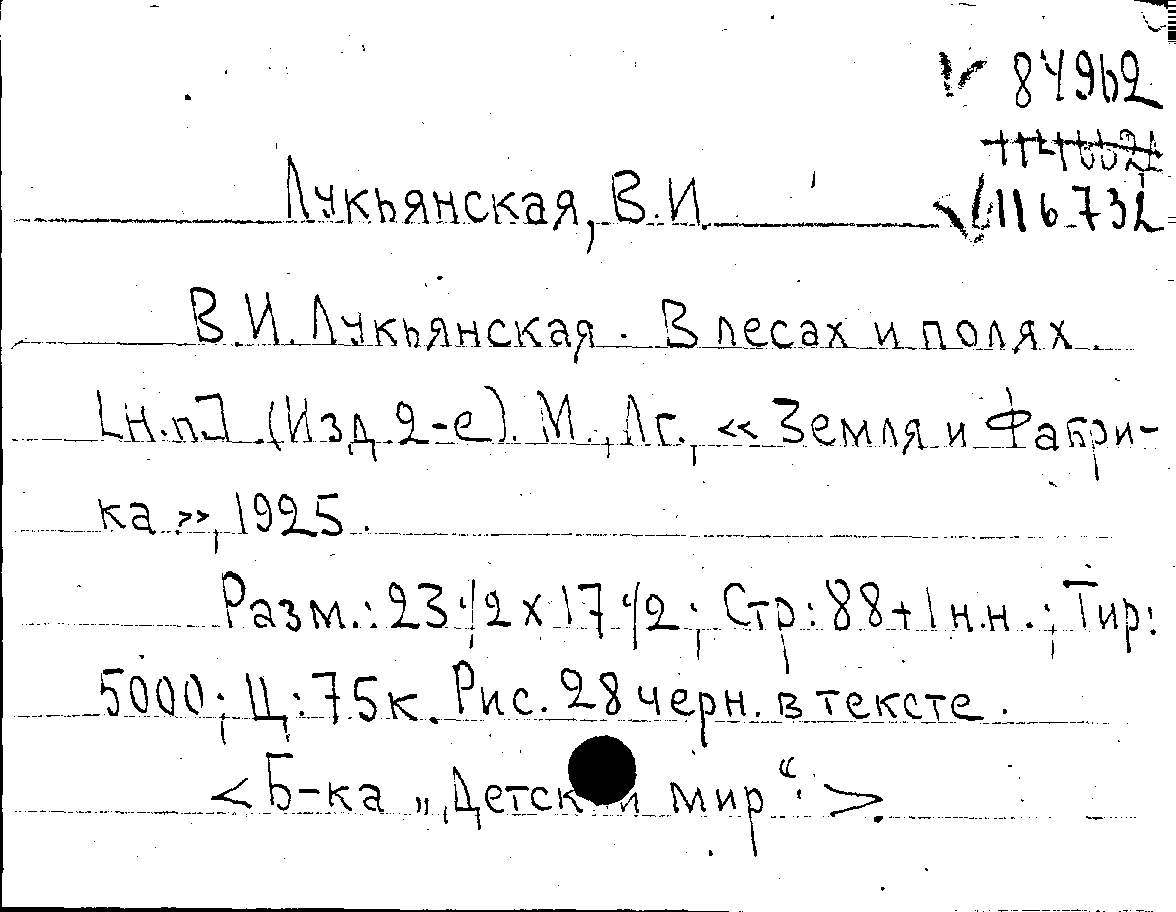 84962
Лукьянская, В.И.
116.732
В.И. Лукьянская. В лесах и полях.
[Н.п] (Изд. 2-е). М., Лг., «Земля и Фабри-
ка», 1925.
Разм.: 23 1/2 х 17 1/2; Стр: 88+1 н.н.; Тир:
5000; Ц: 75к. Рис. 28 черн. в тексте.
<Б-ка „Детский мир“.>.